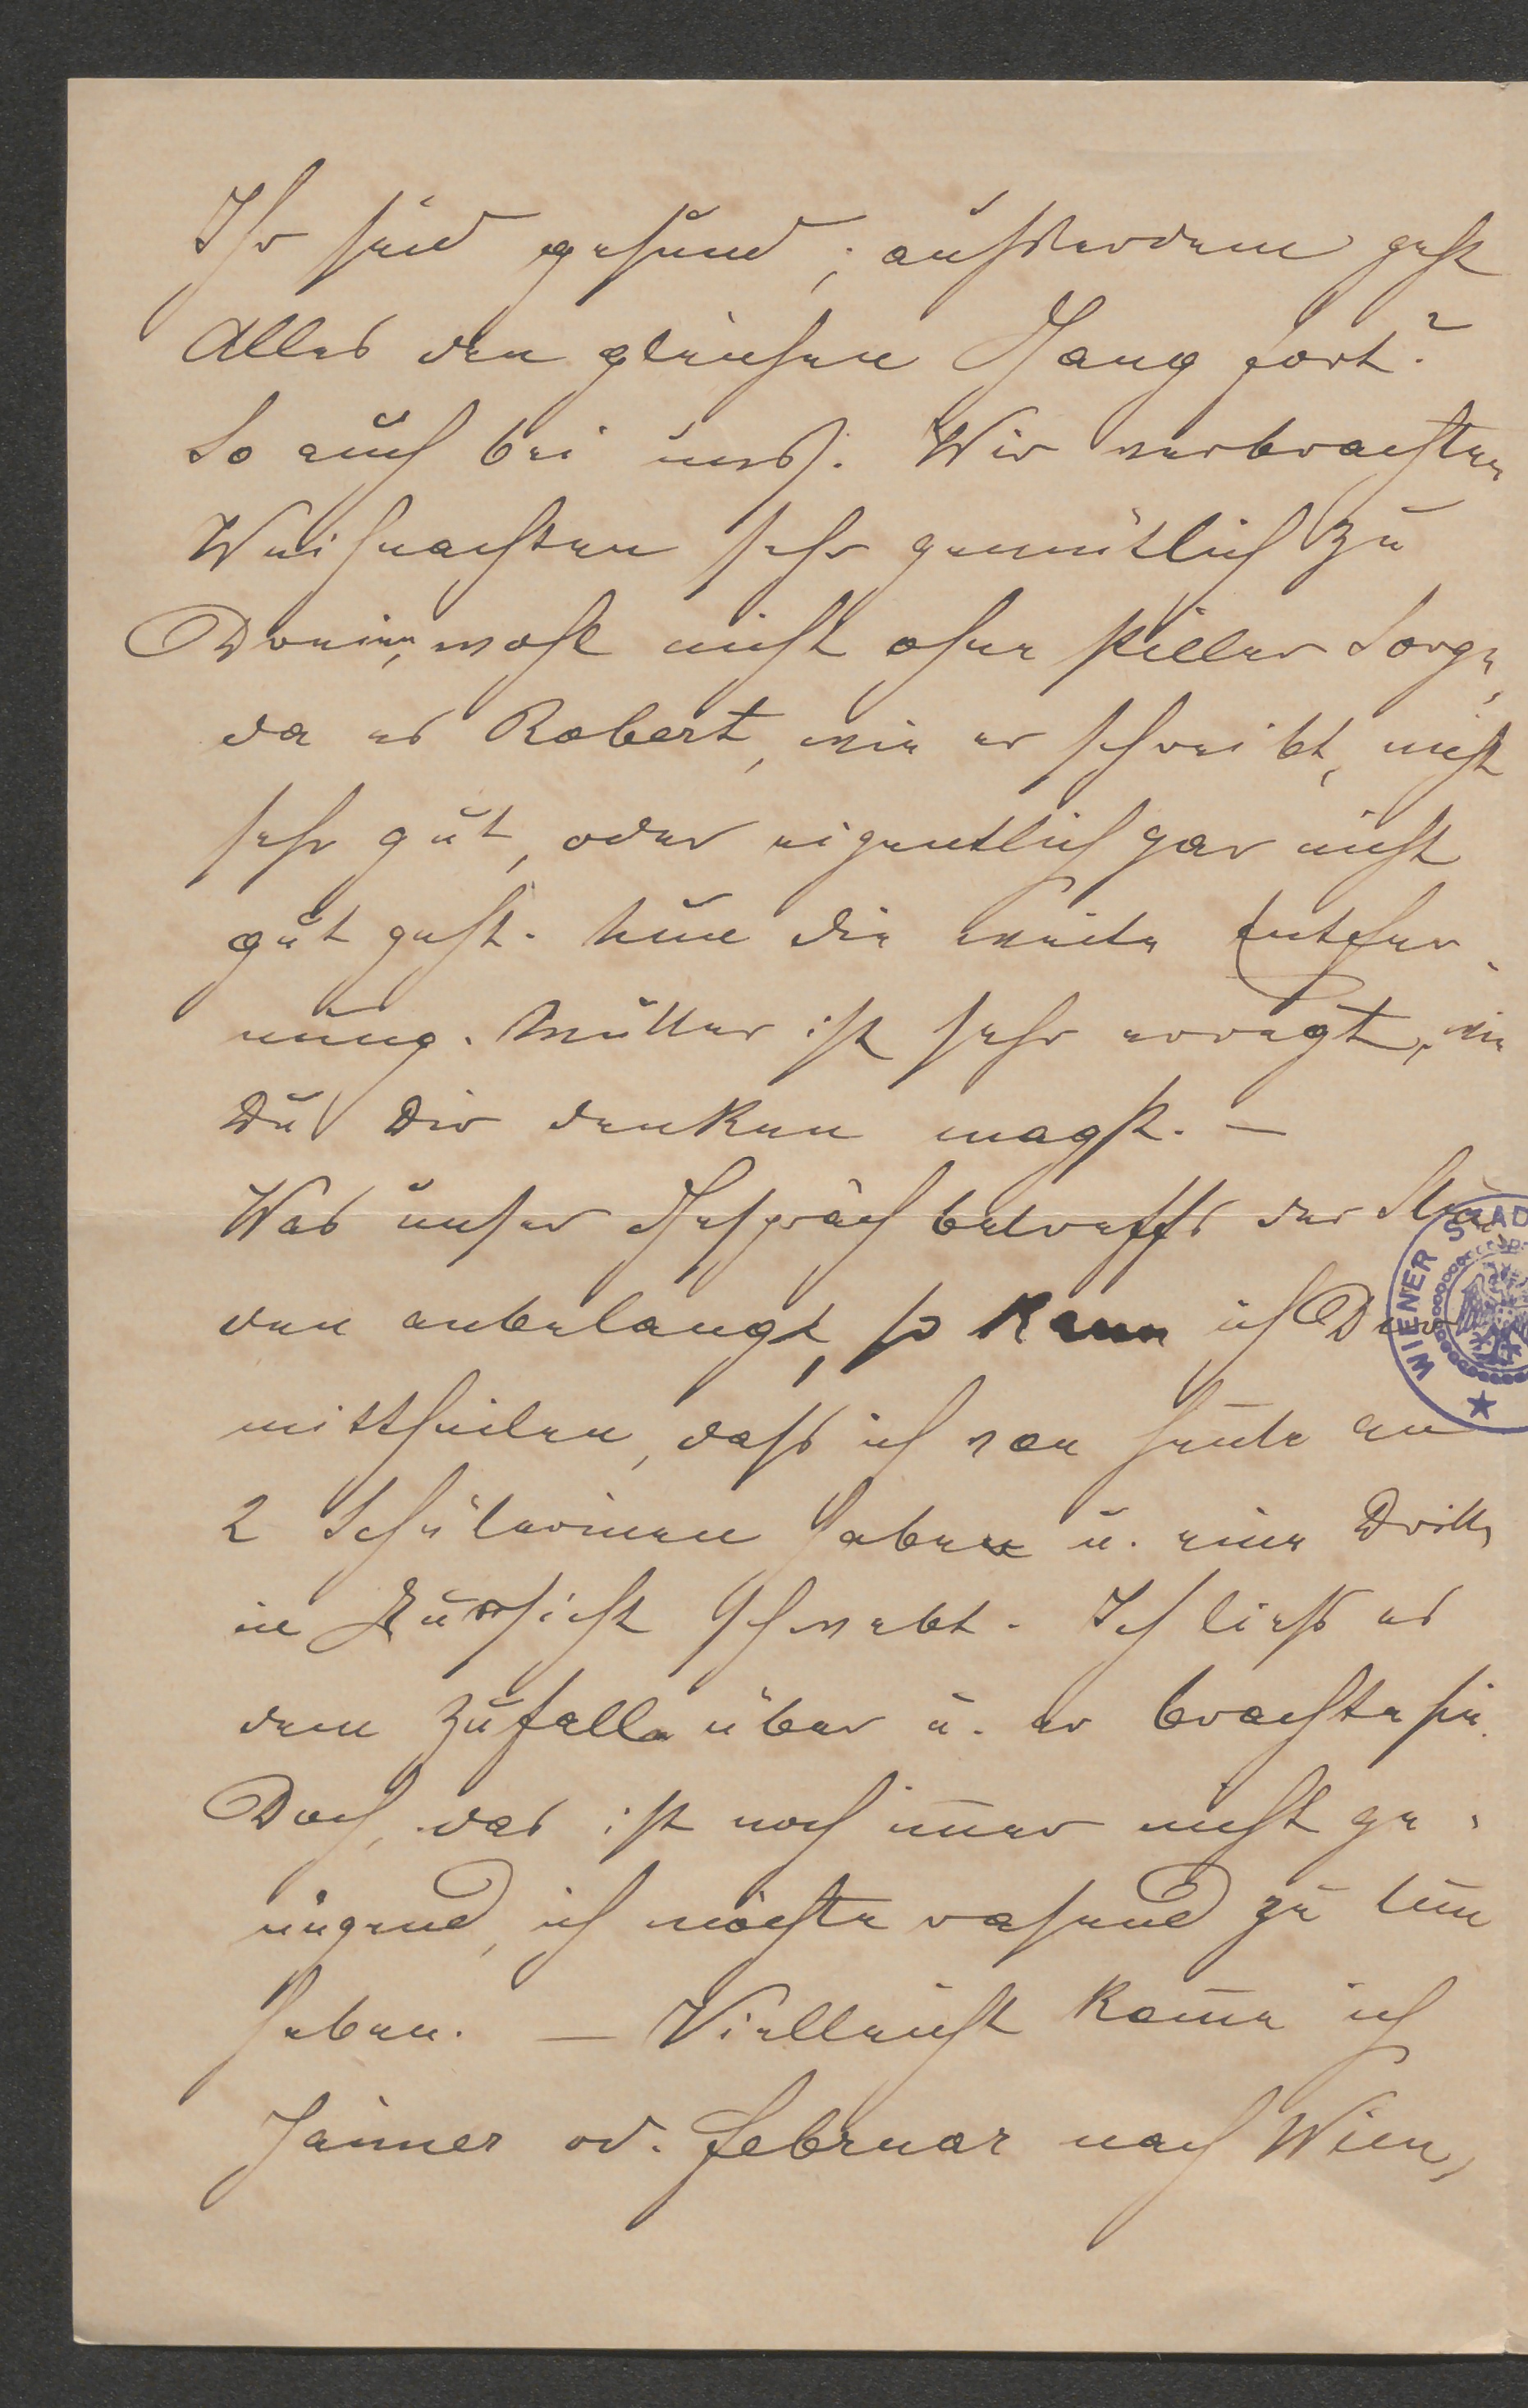 Ihr seid gesund; aussserdem geht
Alles den gleichen Gang fort?
So auch bei uns. Wir verbrachten
Weihnachten sehr gemütlich zu
wohl nicht ohne stiller Sorge,
da es Robert, wie er schreibt, nicht
sehr gut, oder eigentlich gar nicht
gut geht. Nun die weite Entfer-
nung. Mutter ist sehr erregt, wie
Du Dir denken magst. —
Was unser Gespräch betreffs der Stun
den anbelangt, so kann ich Dir
mittheilen, dass ich von heute an
2 Schülerinen haben u. eine Dritte
in Aussicht schwebt. Ich liess es
dem Zufalle über u. er brachte sie.
Doch, das ist noch im̅er nicht ge-
nügend, ich möchte rasend zu tun
haben. — Vielleicht kom̅e ich
Jänner od. Februar nach Wien,
WIENER STAD